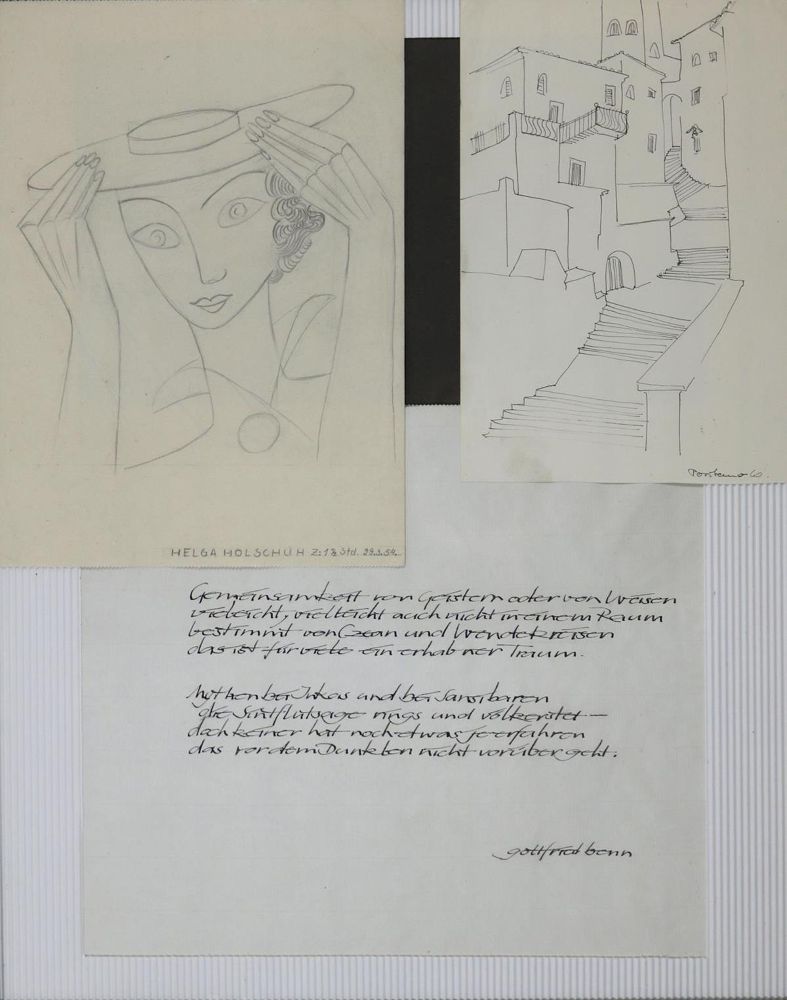 Positano 60.
HELGA HOLSCHUH Z: Std.
Gemeinsamkeit von Geistern oder von Weisen
vielleicht, vielleicht auch nicht in einem Raum
bestimmt von Ozean und Wendekreisen
das ist für viele ein erhabner Traum.
Mythen bei Inkas und bei Sansibaren
die Sintflutsage rings und völkerstet –
doch keiner hat noch etwas je erfahren
das vor dem nicht vorüber geht.
gottfried benn